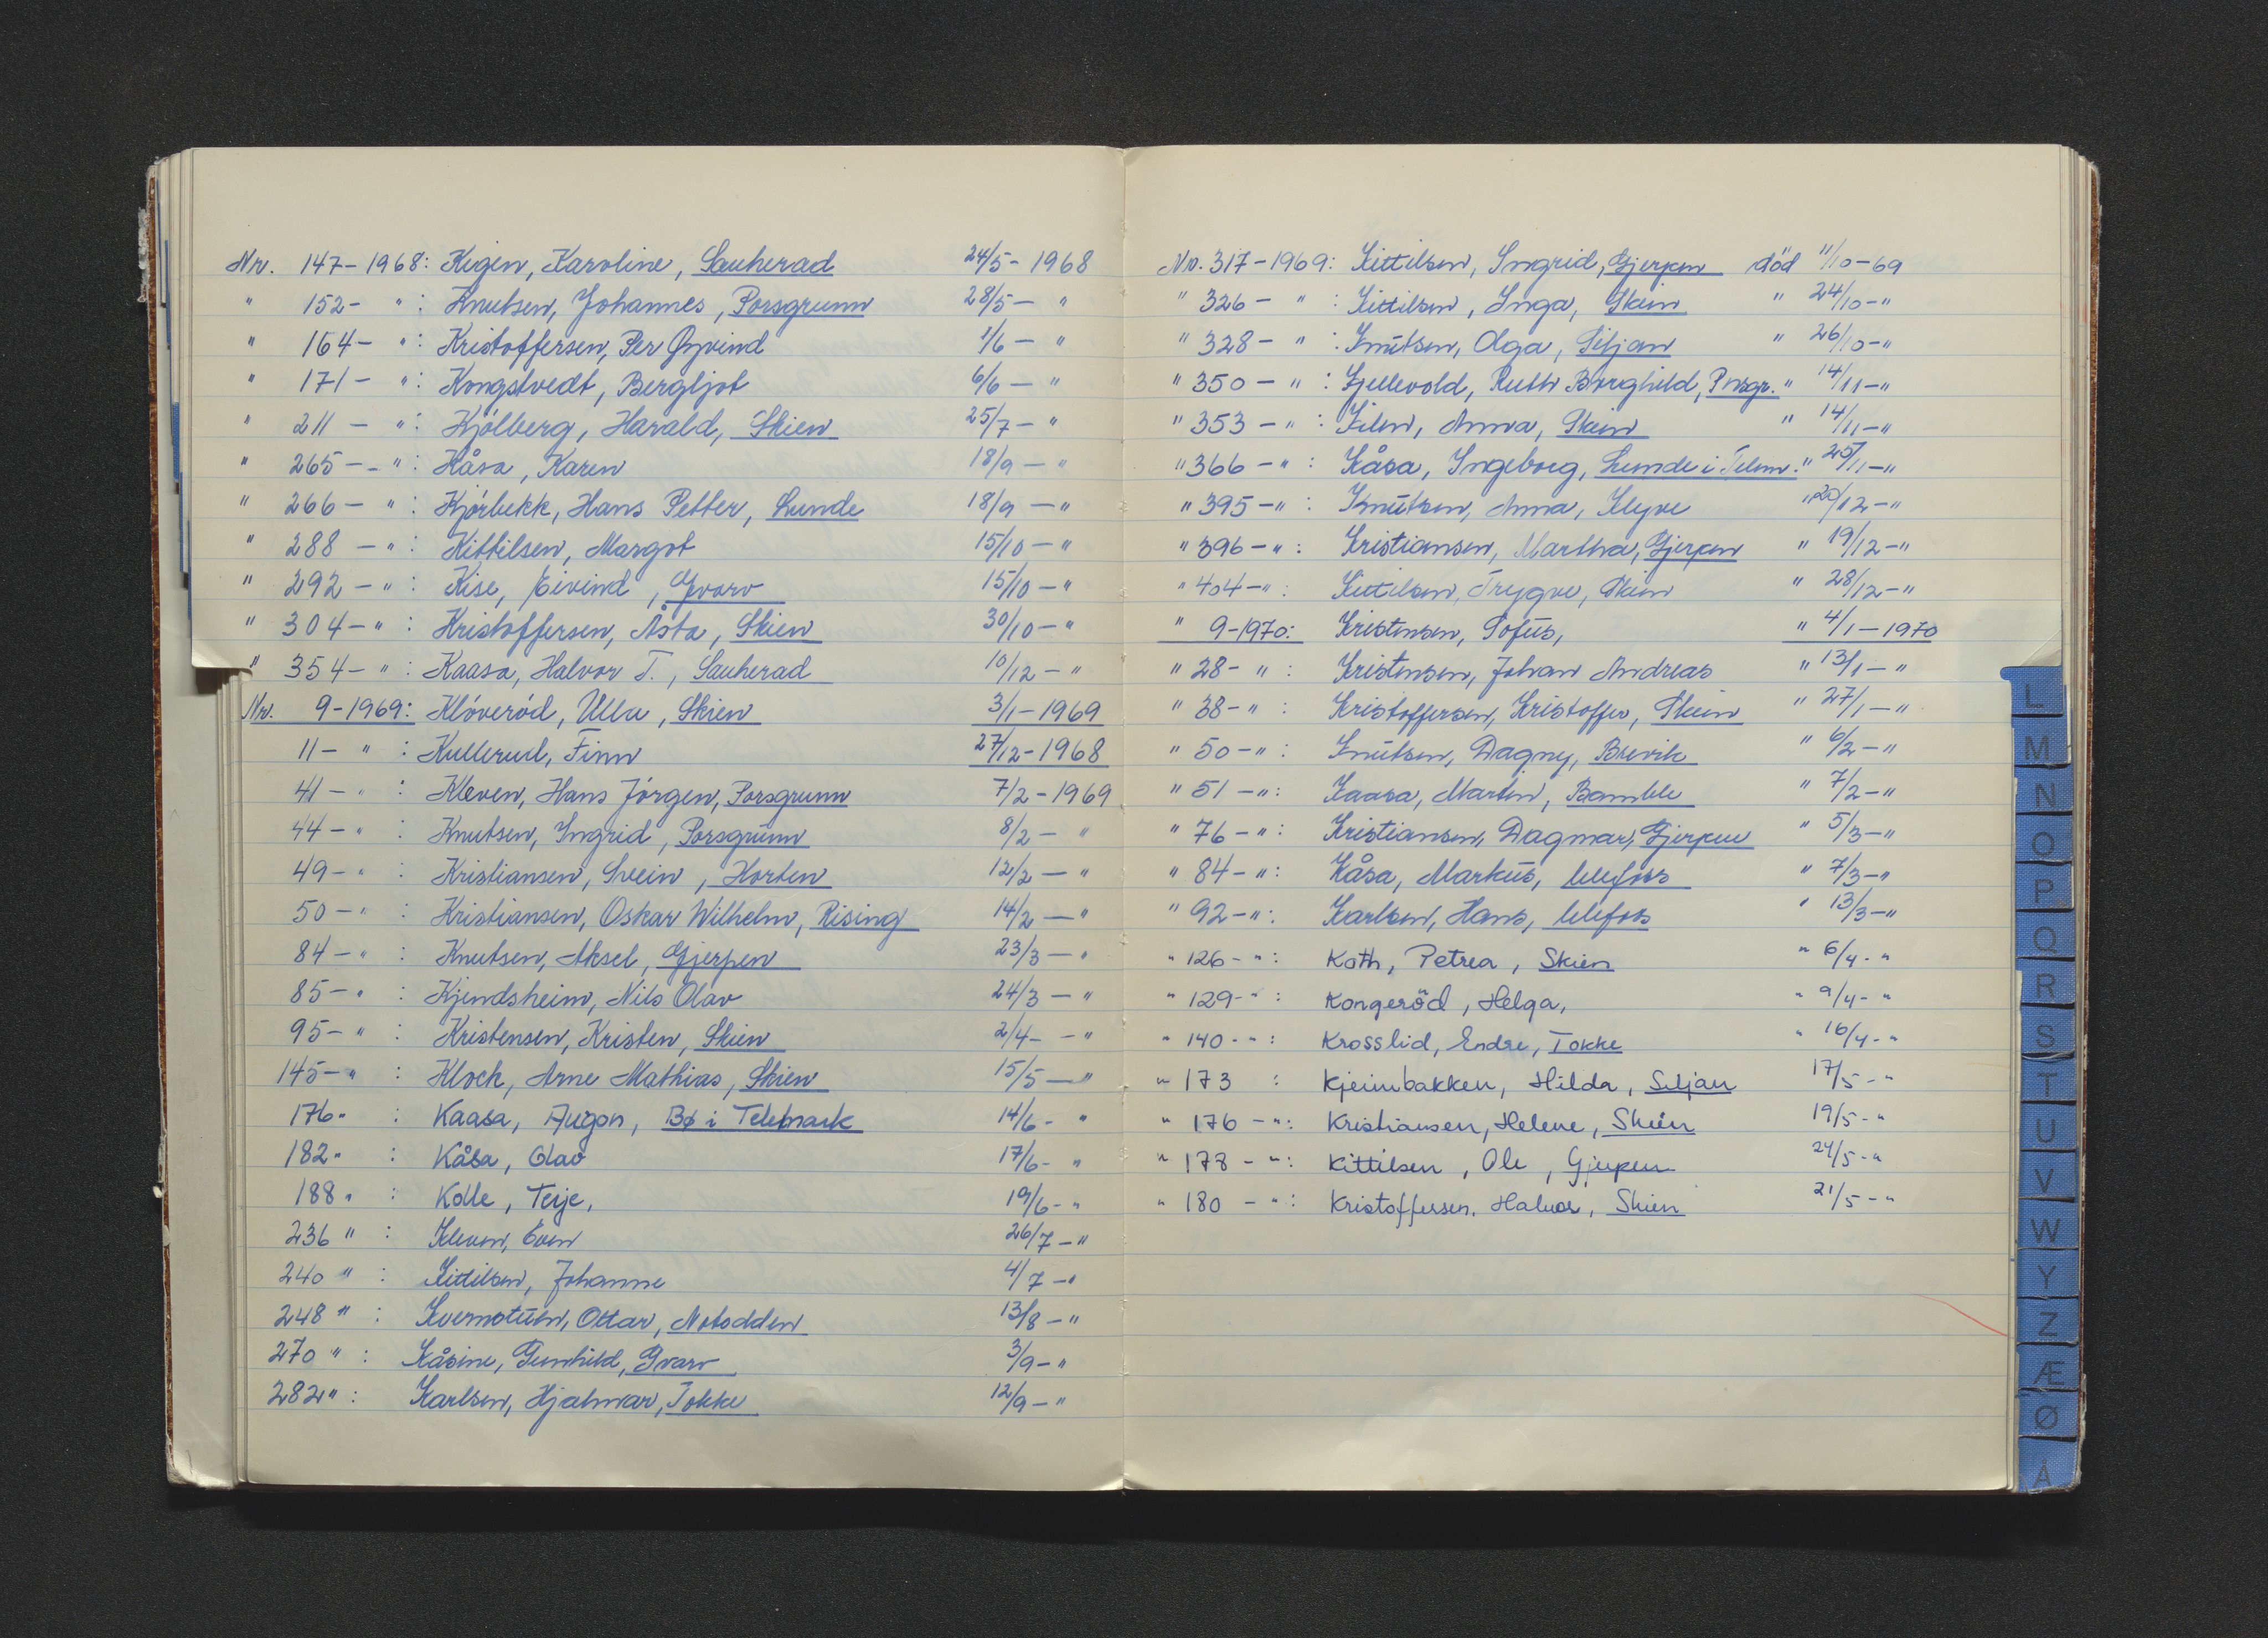 Nr. 147-1968: Kigen, Karoline, Sauherad 24/5-1968
" 152- ": Knutsen, Johannes, Porsgrunn 28/5-"
" 164- ": Kristoffersen, Per Øyvind 1/6-"
" 171- ": Kongstvedt, Bergljot 6/6-"
" 211- ": Kjölberg, Harald, Skien 25/7-"
" 265- ": Kåsa, Karen 18/9-"
" 266- ": Kjörbekk, Hans Petter, Lunde 18/9-"
" 288- ": Kittilsen, Margot 15/10-"
" 292- ": Kise, Eivind, Gvarv 15/10-"
" 304- ": Kristoffersen, Åsta, Skien 30/10-"
" 354- ": Kaasa, Halvor T., Sauherad 10/12-"
Nr. 9-1969: Klöveröd, Ulla, Skien 3/1-1969
11- ": Kullerud, Finn 27/12-1968
41- ": Kleven, Hans Jörgen, Porsgrunn 7/2-1969
44- ": Knutsen, Ingrid, Porsgrunn 8/2-"
49- ": Kristiansen, Svein, Horten 12/2-"
50- ": Kristiansen, Oskar Wilhelm, Rising 14/2-"
84- ": Knutsen, Aksel, Gjerpen 23/3-"
85- ": Kjendsheim, Nils Olav 24/3-"
95- ": Kristensen, Kristen, Skien 2/4-"
145- ": Klock, Arne Mathias, Skien 15/5-"
176" : Kaasa, Augon, Bø i Telemark 14/6-"
182" : Kåsa, Olav 17/6-"
188" : Kolle, Terje, 19/6-"
236" : Kleven, Even 26/7-"
240" : Kittilsen, Johanne 4/7-"
248" : Kvernstuen, Ottar, Notodden 13/8-"
270" : Kåsine, Gunhild, Gvarv 3/9-"
282" : Karlsen, Hjalmar, Tokke 12/9-"
Nr. 317-1969: Kittilsen, Ingrid, Gjerpen död 11/10-69
" 326- ": Kittilsen, Inga, Skien " 24/10-"
" 328- ": Knutsen, Olga, Siljan " 26/10-"
" 350- ": Kjellevold, Ruth Borghild, Porsgr. " 14/11-"
" 353- ": Kilen, Anna, Skien " 14/11-"
" 366- ": Kåsa, Ingeborg, Lunde i Telem. " 25/11-"
" 395- ": Knutsen, Anna, Klyve " 20/12-"
" 396- ": Kristiansen, Martha, Gjerpen " 19/12-"
" 404- ": Kittilsen, Trygve, Skien " 28/12-"
" 9-1970: Kristensen, Sofus, " 4/1-1970
" 28- ": Kristensen, Johan Andreas " 13/1-"
" 38- ": Kristoffersen, Kristoffer, Skien " 27/1-"
" 50- ": Knutsen, Dagny, Brevik " 6/2-"
" 51- ": Kaasa, Martin, Bamble " 7/2-"
" 76- ": Kristiansen, Dagmar, Gjerpen " 5/3-"
" 84- ": Kåsa, Markus, Ulefoss " 7/3-"
" 92- ": Karlsen, Hans, Ulefoss " 13/3-"
" 126- ": Koth, Petrea, Skien " 6/4-"
" 129- ": Kongeröd, Helga, " 9/4-"
" 140- ": Krosslid, Endre, Tokke " 16/4-"
" 173 : Kjeimbakken, Hilda, Siljan 17/5-"
" 176- ": Kristiansen, Helene, Skien 19/5-"
" 178- ": Kittilsen, Ole, Gjerpen 24/5-"
" 180- ": Kristoffersen, Halvor, Skien 21/5-"
L
M
N
O
P
Q
R
S
T
U
V
W
Y
Z
Æ
Ø
Å